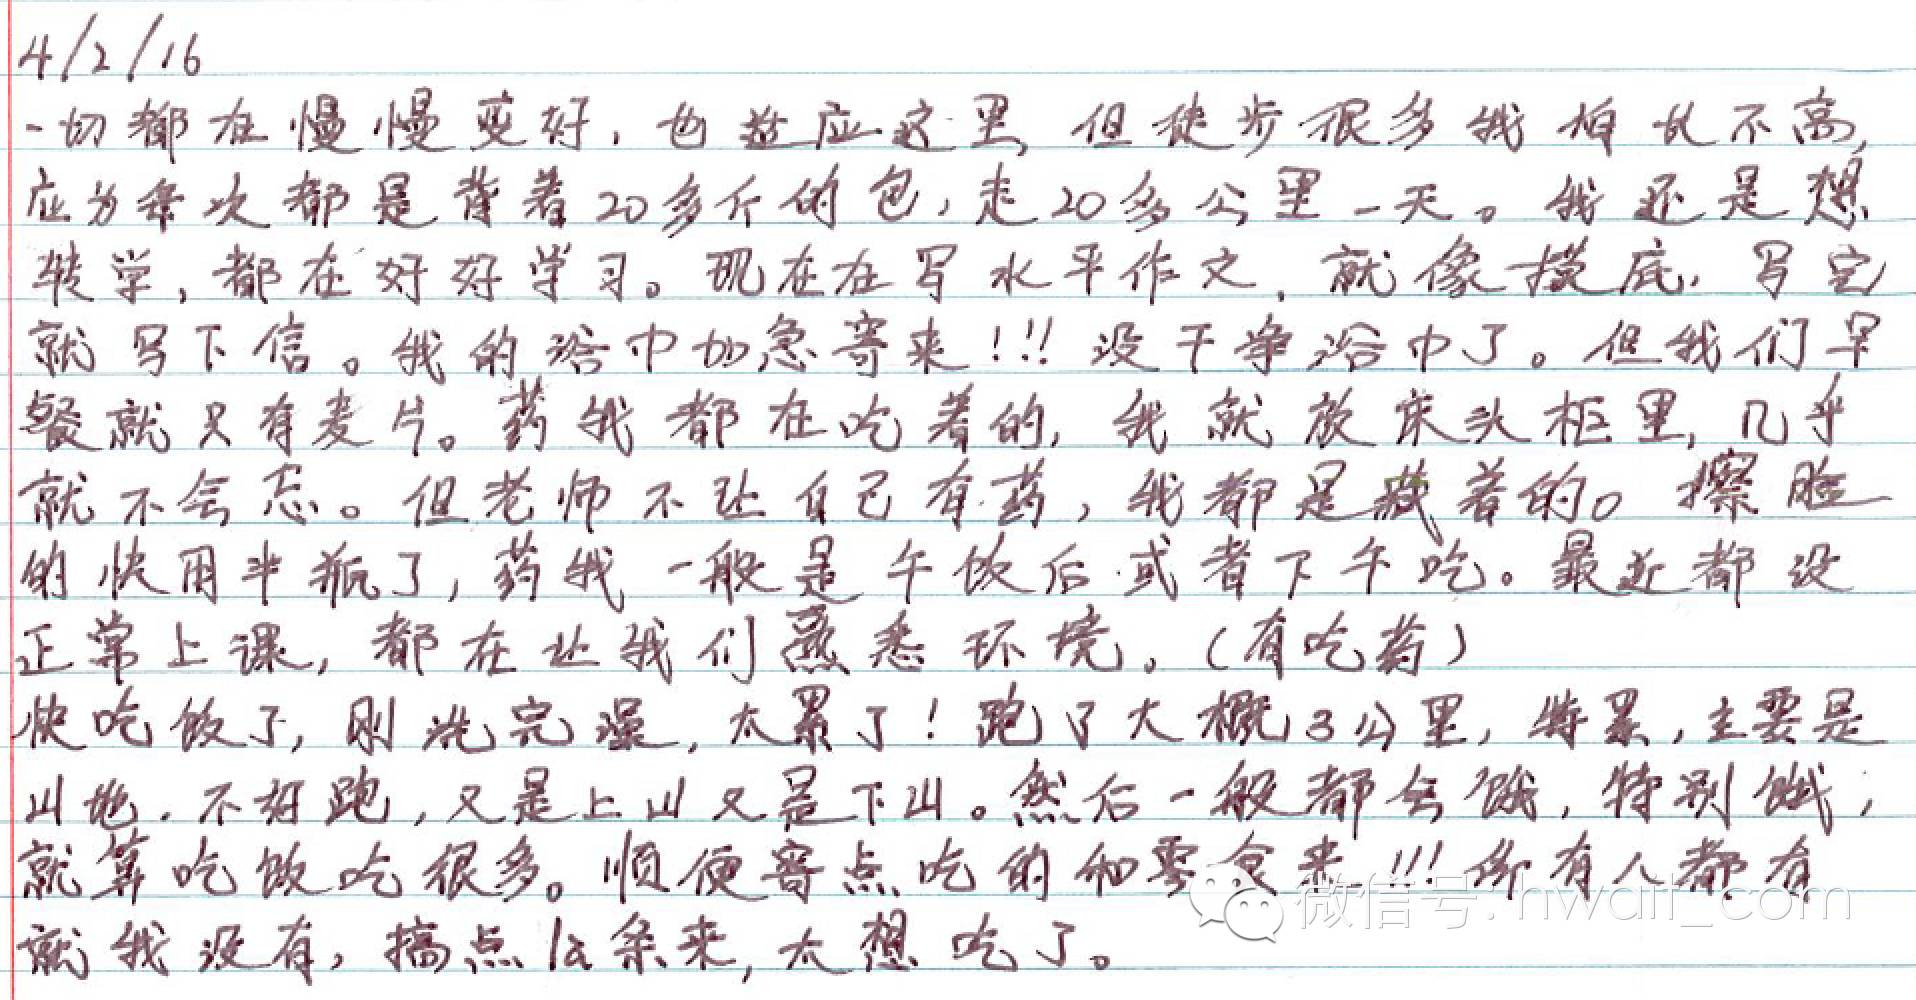 4/2/16
一切都在慢慢变好，也适应这里，但徒步很多我怕长不高，
应为条次都是背着20多斤的包，走20多公里一天。我还是想
转学，都在好好学习。现在在写水平作文，就像摸底，写完
就写下信。我的浴巾加急寄来!!! 没干净浴巾了。但我们早
餐就只有麦片。药我都在吃着的，我就放床头柜里，几乎
就不会忘。但老师不让自己有药，我都是藏着的。擦脸
的快用半瓶了，药我一般是午饭后或者下午吃。最近都没
正常上课，都在让我们熟悉环境。（有吃药）
快吃饭了，刚洗完澡，太累了！跑了大概3公里，特累，主要是
山地，不好跑，又是上山又是下山。然后一般都会饿，特别饿，
就算吃饭吃很多。顺便寄点吃的和零食来!!! 所有人都有
就我没有，搞点la条来，太想吃了。
微信号: hwait_com